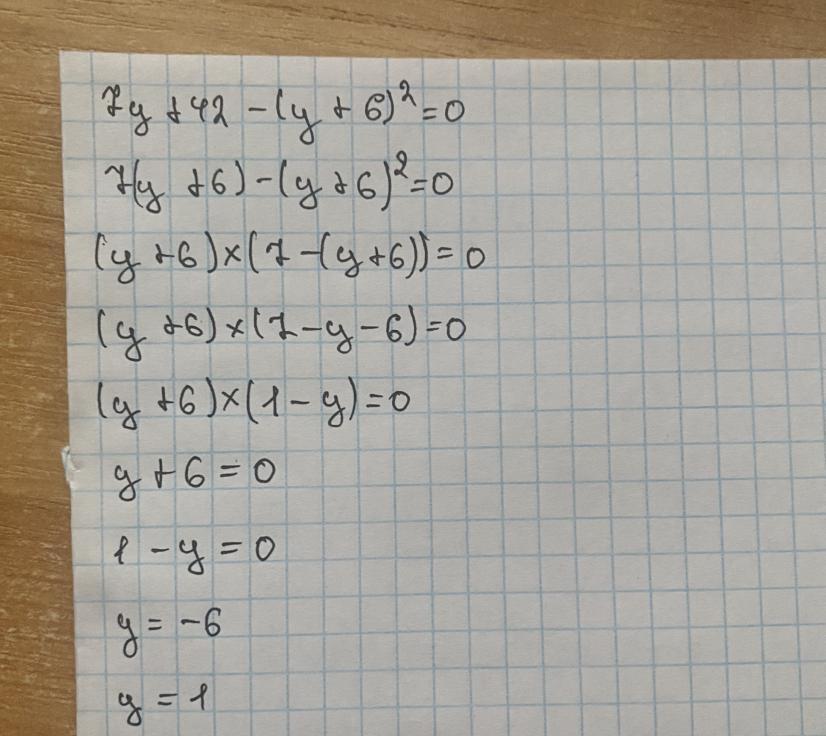 7y + 42 - (y + 6)² = 0
7(y + 6) - (y + 6)² = 0
(y + 6) × (7 - (y + 6)) = 0
(y + 6) × (7 - y - 6) = 0
(y + 6) × (1 - y) = 0
y + 6 = 0
1 - y = 0
y = -6
y = 1